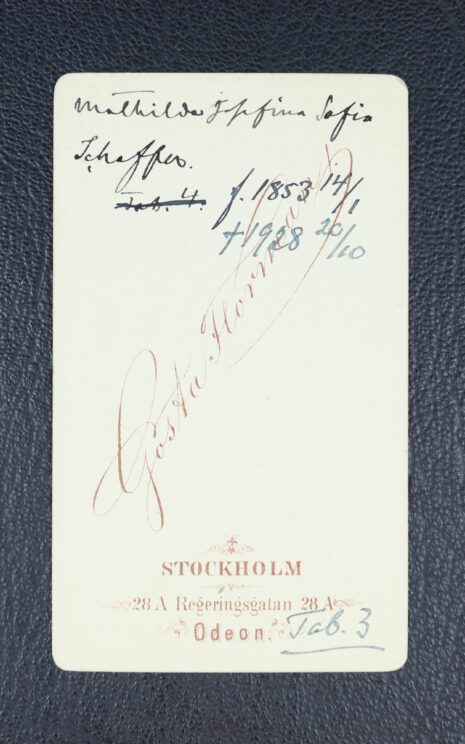 Mathilda Josefina Sofia
Schaffer.
Tab. 4. f. 1853 14/1
†1928 20/10
Gösta Florman
STOCKHOLM
28 A Regeringsgatan 28 A
Odeon. Tab. 3